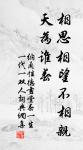 相思相望不相親
天為誰春
納蘭性德畫堂春一生
一代一双人詞共網書